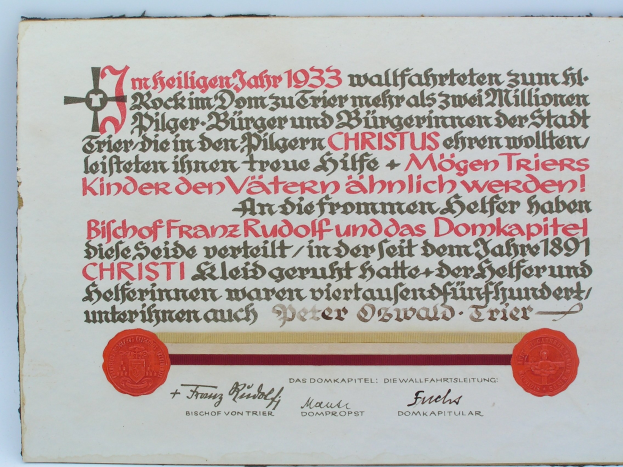 Im heiligen Jahr 1933 wallfahrteten zum hl.
Rock im Dom zu Trier mehr als zwei Millionen
Pilger · Bürger und Bürgerinnen der Stadt
Trier, die in den Pilgern CHRISTUS ehren wollten,
leisteten ihnen treue Hilfe + Mögen Triers
Kinder den Vätern ähnlich werden!
An die frommen Helfer haben
Bischof Franz Rudolf und das Domkapitel
diese Seide verteilt, in der seit dem Jahre 1891
CHRISTI Kleid geruht hatte + der Helfer und
Helferinnen waren viertausendfünfhundert,
unter ihnen auch Peter Oswald · Trier
DAS DOMKAPITEL: DIE WALLFAHRTSLEITUNG:
+ Franz Rudolf Fuchs
BISCHOF VON TRIER DOMPROPST DOMKAPITULAR